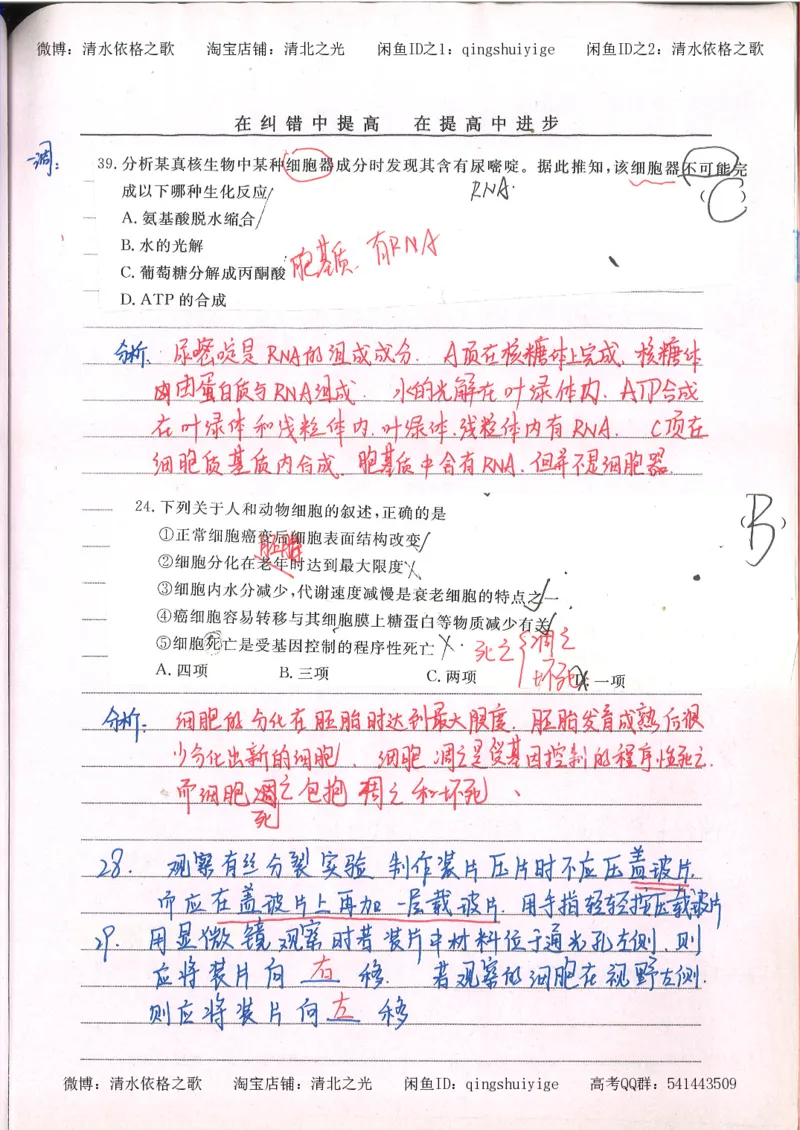 微博：清水依格之歌 淘宝店铺：清北之光 闲鱼ID之1：qingshuiyige 闲鱼ID之2：清水依格之歌
在纠错中提高 在提高中进步
一调：
39. 分析某真核生物中某种细胞器成分时发现其含有尿嘧啶。据此推知，该细胞器不可能完
RNA.
成以下哪种生化反应 (C)
A. 氨基酸脱水缩合
B. 水的光解
C. 葡萄糖分解成丙酮酸 胞基质. 有RNA
D. ATP 的合成
分析. 尿嘧啶是RNA的组成成分. A项在核糖体上完成. 核糖体
由蛋白质与RNA组成. 水的光解在叶绿体内. ATP合成
在叶绿体和线粒体内. 叶绿体.线粒体内有RNA. C项在
细胞质基质内合成. 胞基质中含有RNA. 但并不是细胞器.
24. 下列关于人和动物细胞的叙述，正确的是 (B)
①正常细胞癌变后细胞表面结构改变
胚胎
②细胞分化在老年时达到最大限度
③细胞内水分减少，代谢速度减慢是衰老细胞的特点之一
④癌细胞容易转移与其细胞膜上糖蛋白等物质减少有关
⑤细胞死亡是受基因控制的程序性死亡 死亡 凋亡 坏死
A. 四项 B. 三项 C. 两项 D. 一项
分析： 细胞的分化在胚胎时达到最大限度. 胚胎发育成熟后很
少分化出新的细胞. 细胞凋亡是受基因控制的程序性死亡.
而细胞死亡包括凋亡和坏死.
28. 观察有丝分裂实验 制作装片压片时不应压盖玻片.
而应在盖玻片上再加一层载玻片. 用手指轻轻按压载玻片
29. 用显微镜观察时若装片中材料位于通光孔左侧. 则
应将装片向 右 移. 若观察的细胞在视野左侧.
则应将装片向 左 移
微博：清水依格之歌 淘宝店铺：清北之光 闲鱼ID：qingshuiyige 高考QQ群：541443509